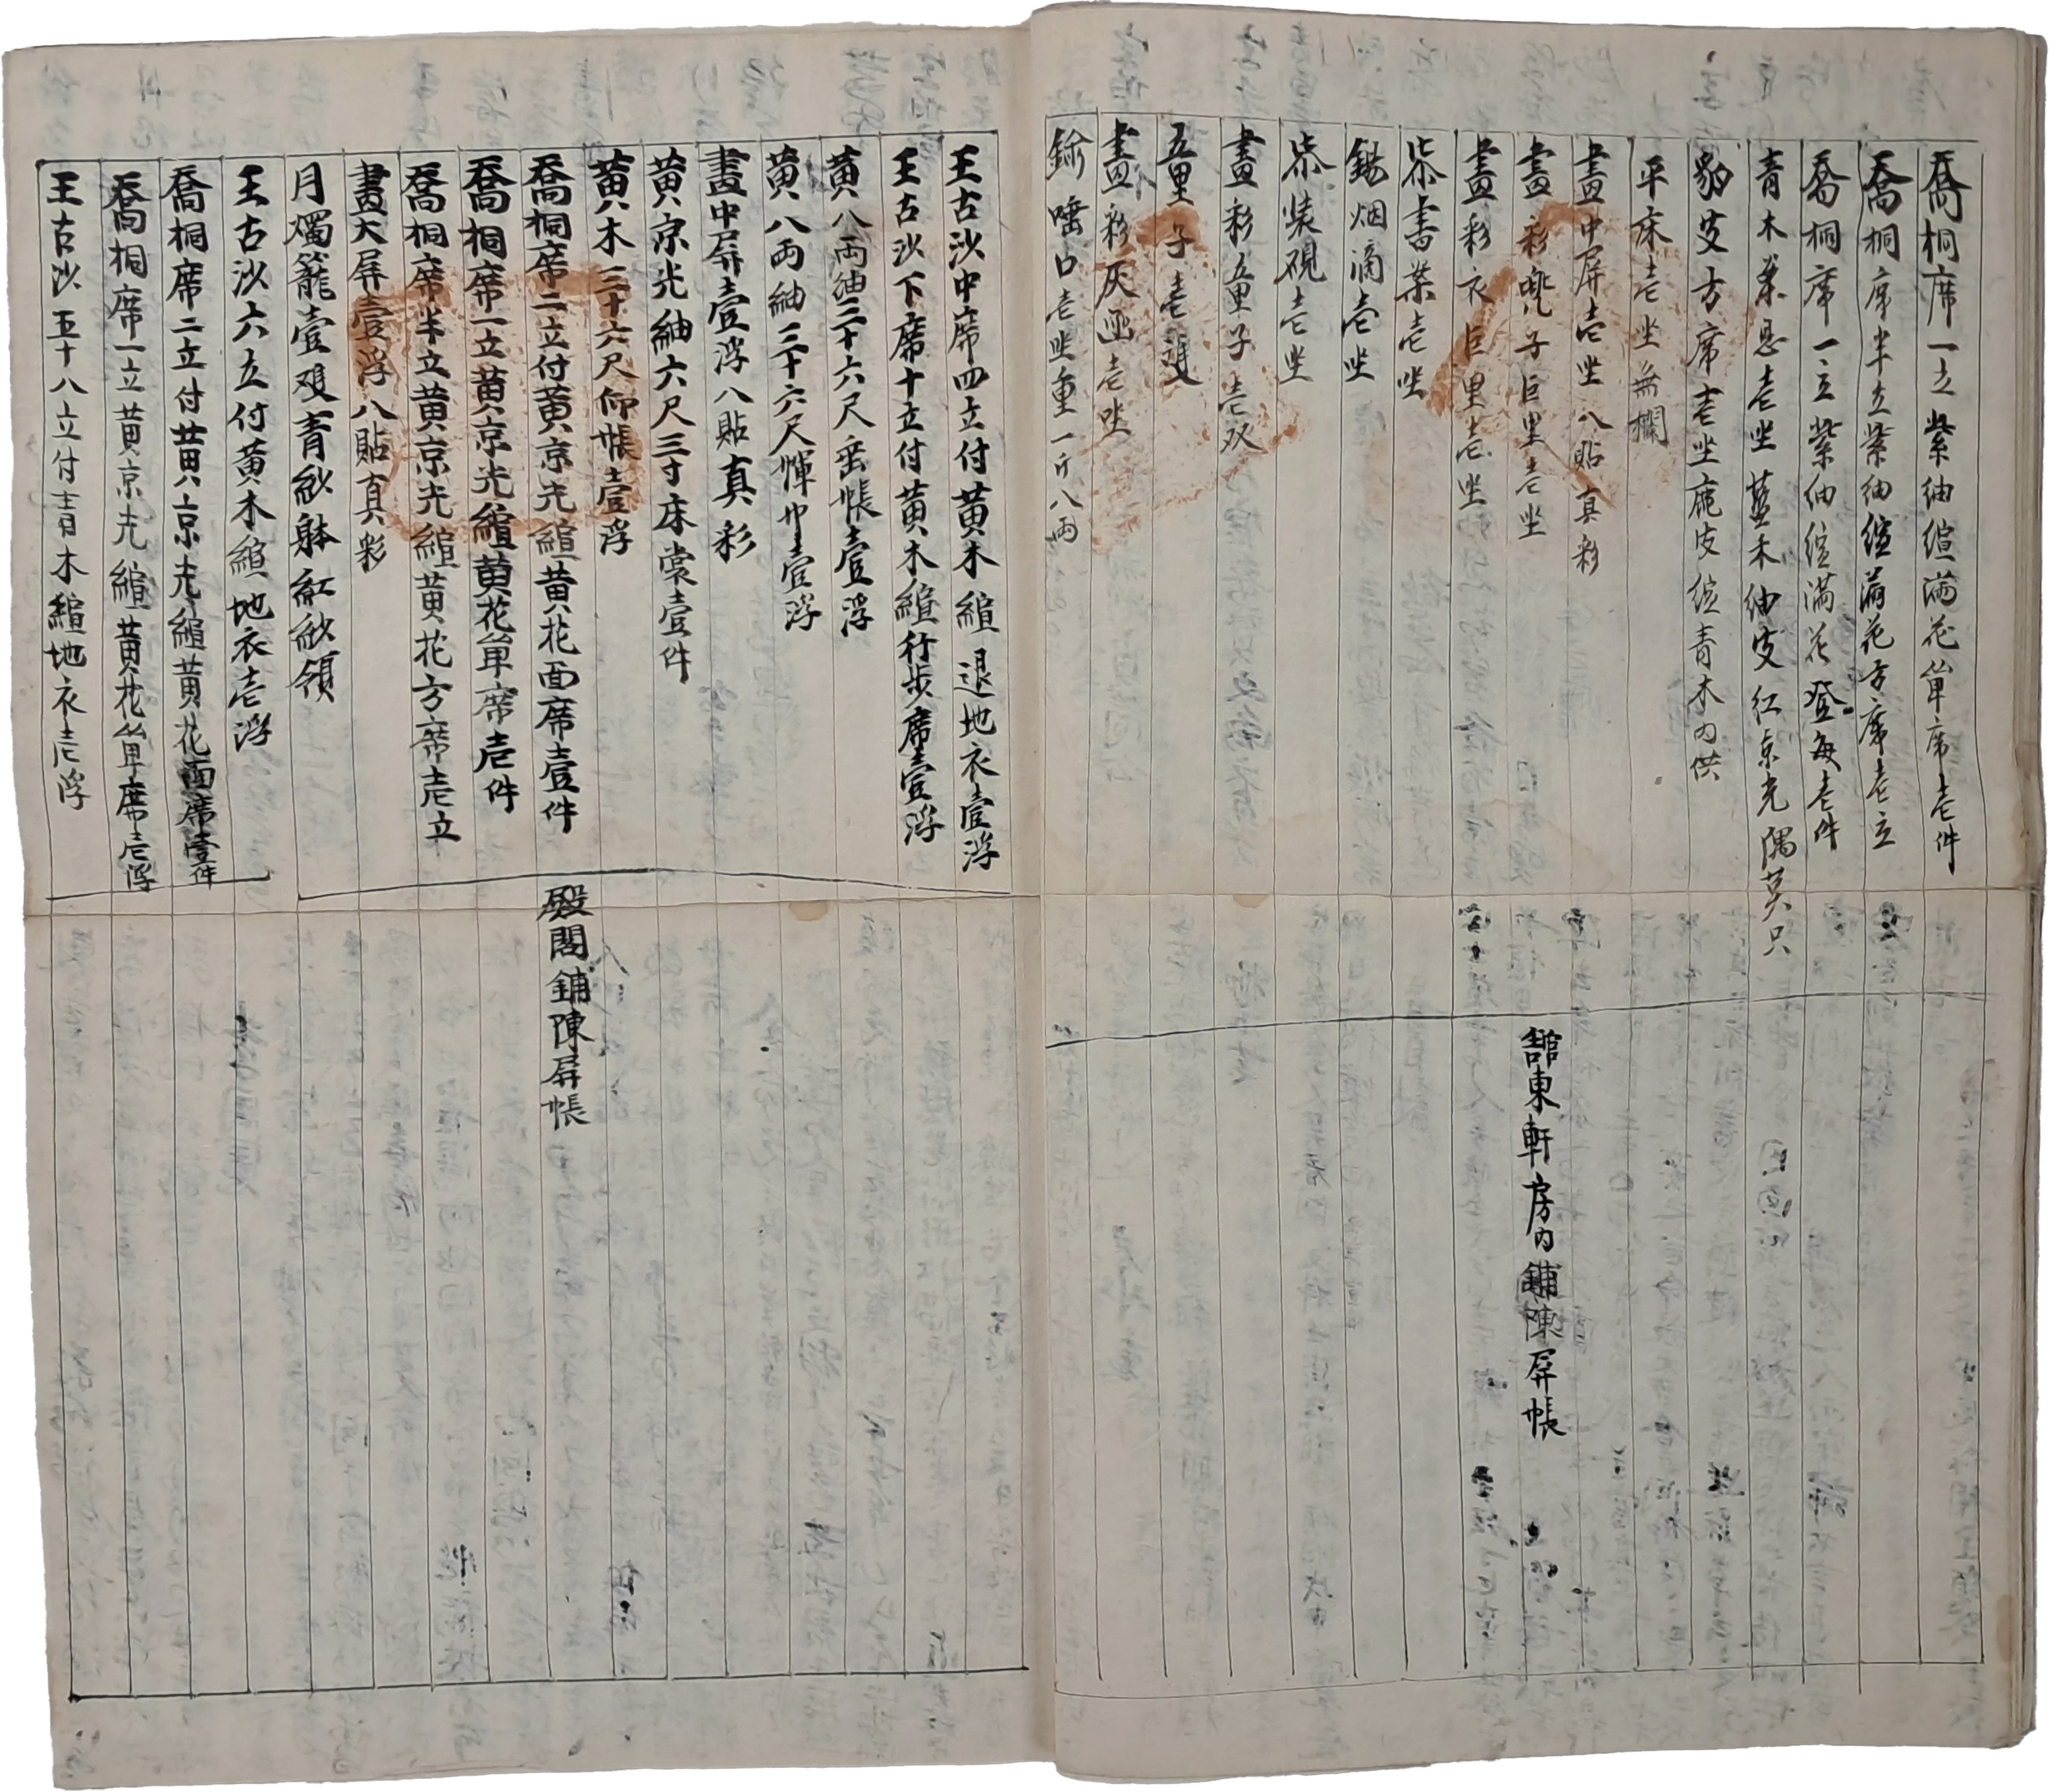 喬桐席一立紫紬縇滿花單席壱件
喬桐席半立紫紬縇滿花方席壱立
喬桐席一立紫紬縇滿花登每壱件
青木案息壱坐藍禾紬皮紅京光隅莫只
豹皮方席壱坐鹿皮縇青木內供
平床壱坐無欄
畫中屏壱坐八貼真彩
畫彩 子巨里壱坐
畫彩衣巨里壱坐
柒書案壱坐
鍚烟滴壱坐
柒裝硯壱坐
畫彩童子壱双
子壱
畫彩灰函壱坐
鍮唾口壱坐重一斤八兩
舘東軒房內鋪陳屏帳
王古沙中席四立付黃木縇退地衣壹浮
王古沙下席十立付黃木縇行步席壹浮
黃八兩紬三十六尺垂帳壹浮
黃八兩紬三十六尺 壹浮
畫中屏壹浮八貼真彩
黃京光紬六尺三寸床裳壹件
黃木三十六尺仰帳壹浮
喬桐席二立付黃京光縇黃花面席壹件
喬桐席一立黃京光縇黃花單席壱件
喬桐席半立黃京光縇黃花方席壱立
畫大屏壹浮八貼真彩
月燭籠壹 青紗躰紅紗領
殿閣鋪陳屏帳
王古沙六立付黃木縇地衣壱浮
喬桐席二立付黃京光縇黃花面席壹件
喬桐席一立黃京光縇黃花單席壱浮
王古沙五十八立付青木縇地衣壱浮